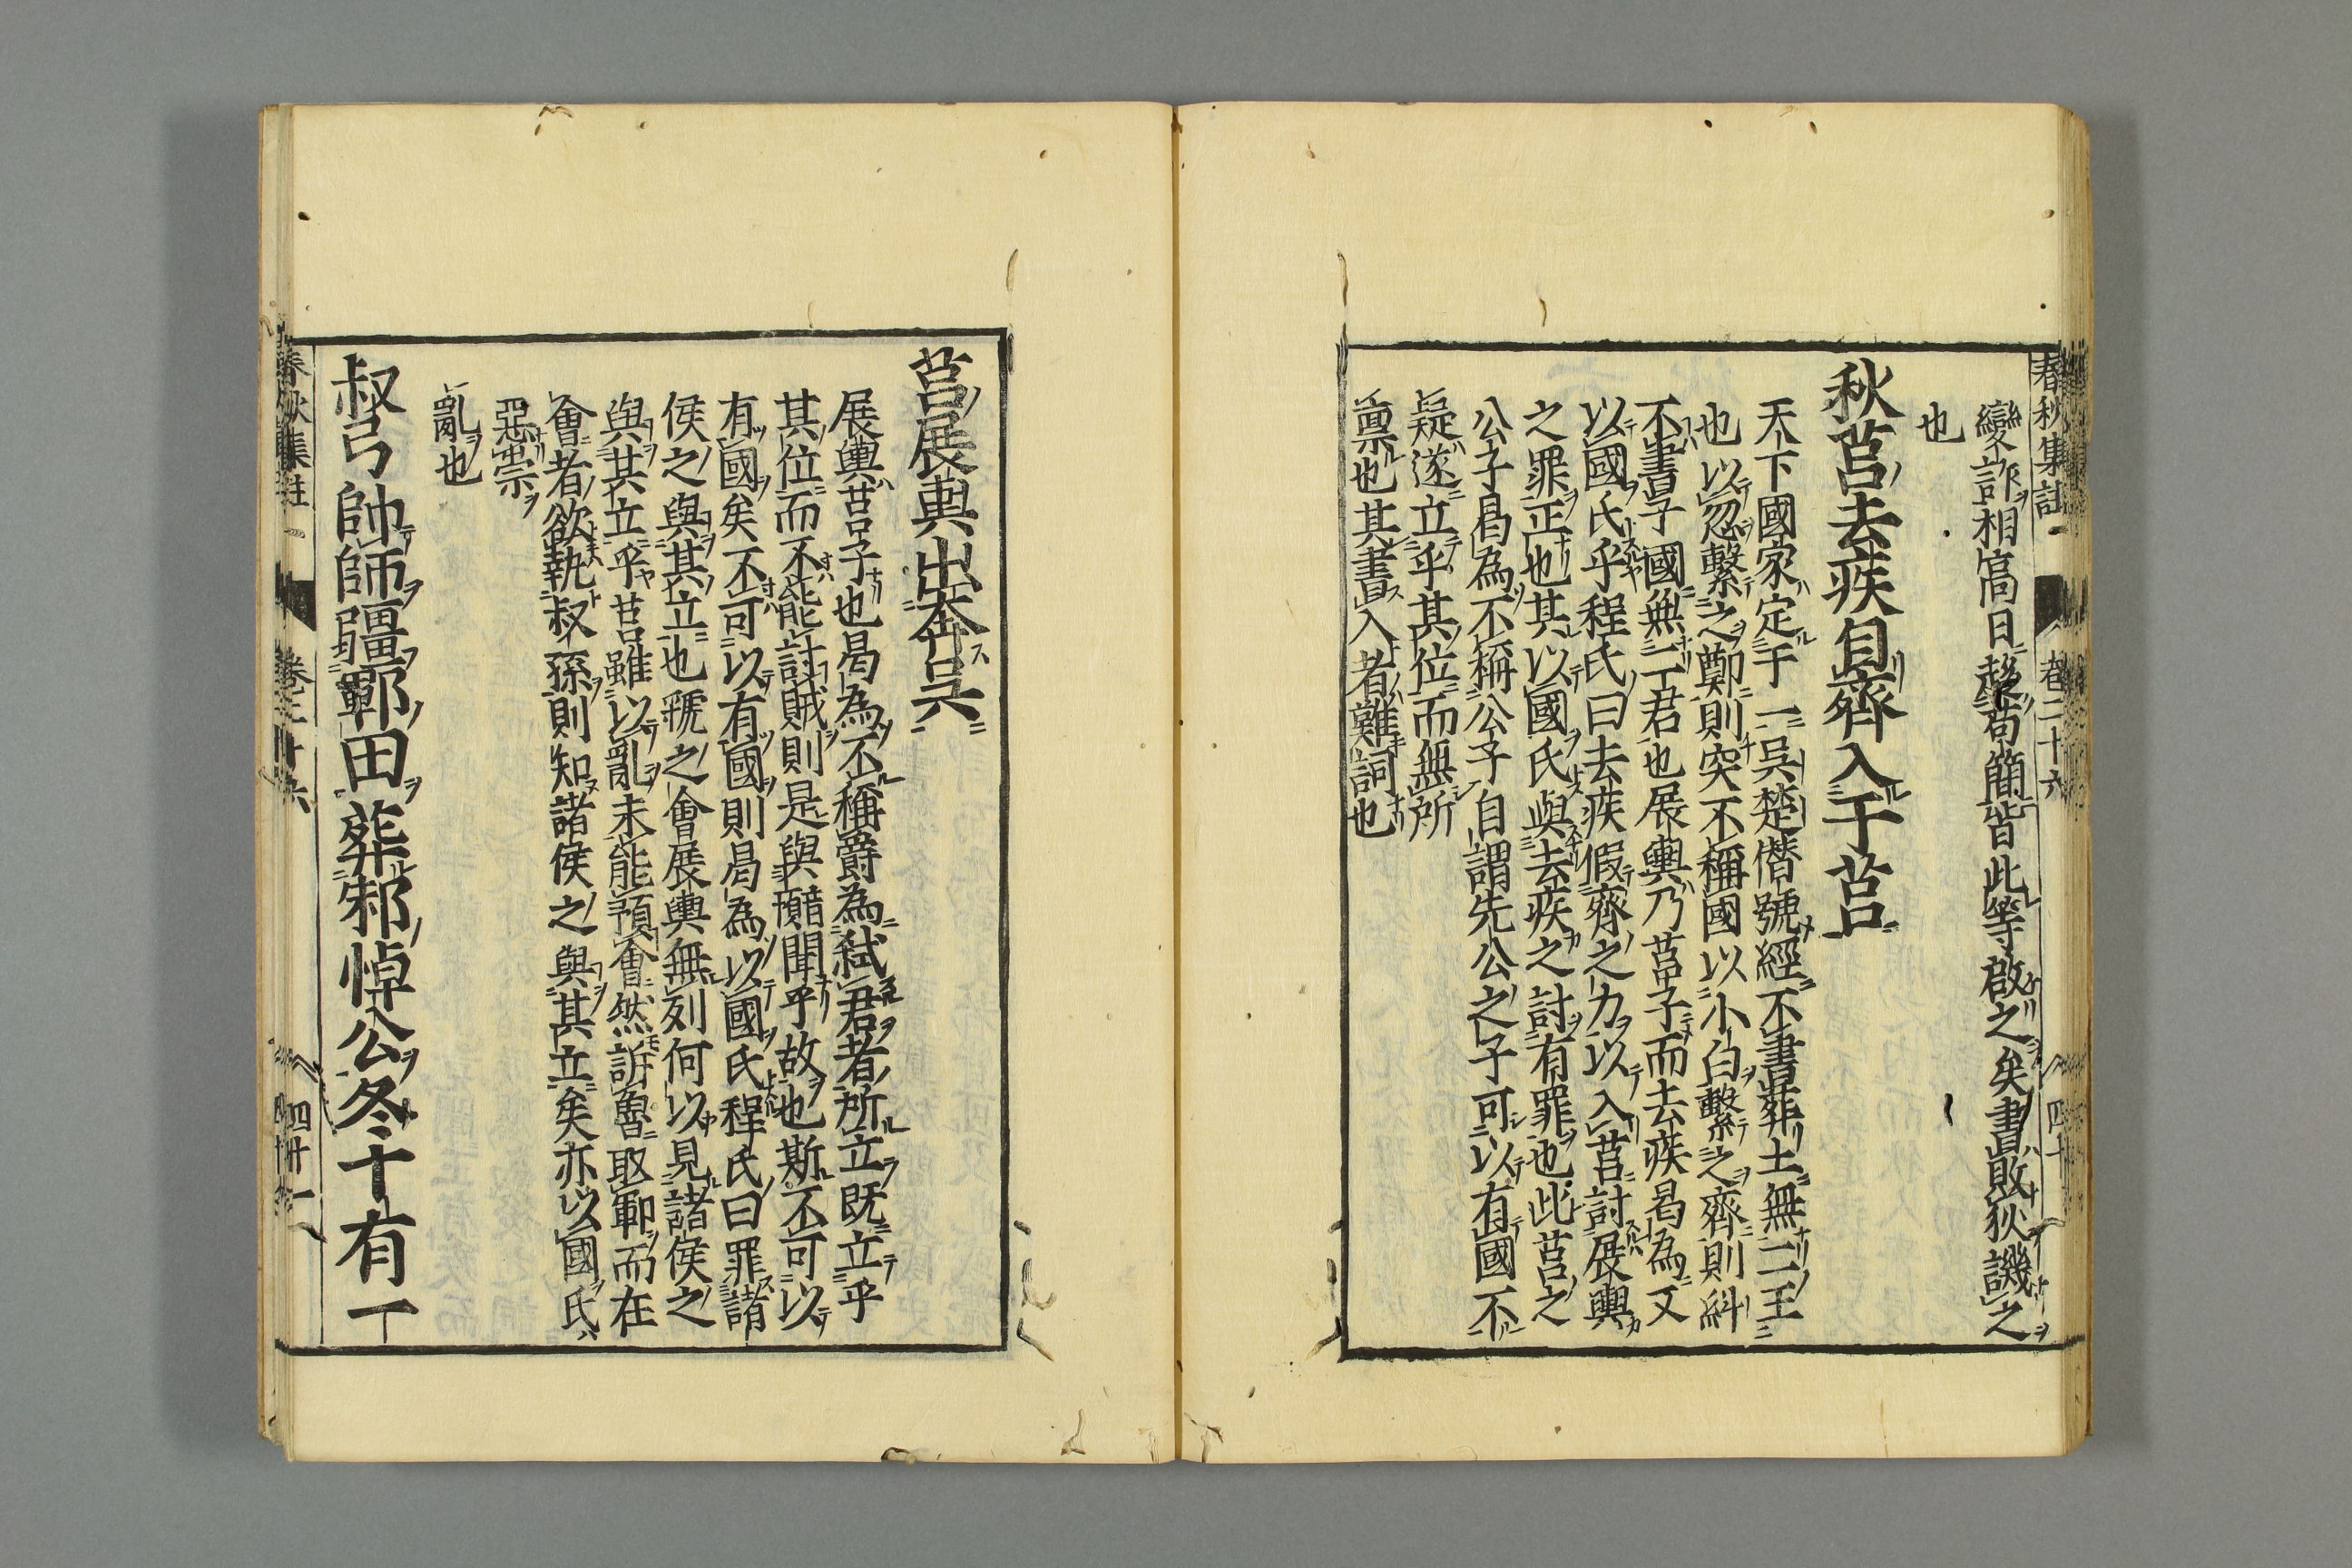 春秋集註 卷二十六 四十
變詐相高日趨苟簡皆此等啟之矣書敗狄譏之
也
秋莒去疾自齊入于莒
天下國家定于一吳楚僭號經不書葬土無二王
也以忽繫之鄭則突不稱國以小白繫之齊則糾
不書子國無二君也展輿乃莒子而去疾曷為又
以國氏乎程氏曰去疾假齊之力以入莒討展輿
之罪正也其以國氏與去疾之討有罪也此莒之
公子曷為不稱公子自謂先公之子可以有國不
疑遂立乎其位而無所
稟也其書入者難詞也
莒展輿出奔吳
展輿莒子也曷為不稱爵為弒君者所立既立乎
其位而不能討賊則是與聞乎故也斯不可以
有國矣不可以有國則曷為以國氏程氏曰罪諸
侯之與其立也虢之會展輿無列何以見諸侯之
與其立乎莒雖以亂未能預會然訴魯取鄆而在
會者欲執叔孫則知諸侯之與其立矣亦以國氏
惡崇
亂也
叔弓帥師疆鄆田葬邾悼公冬十有一
春秋集註 卷二十六 四十一